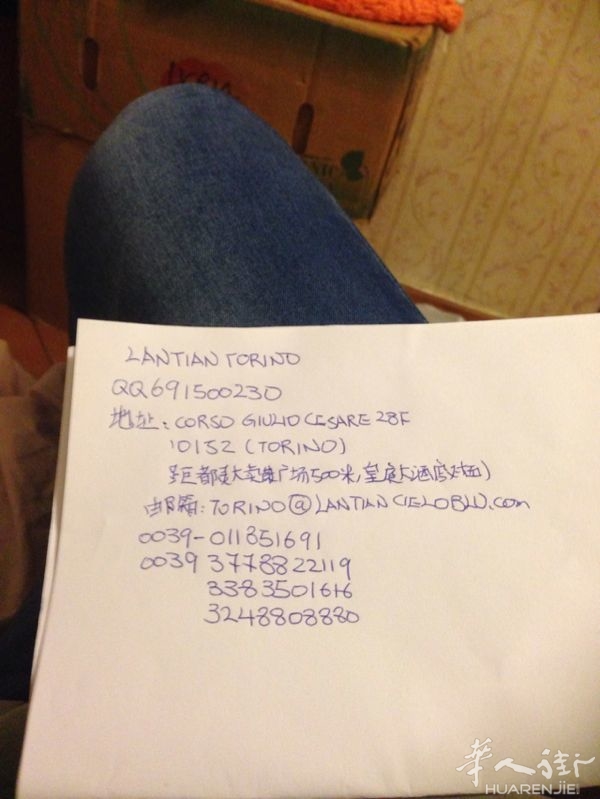 LANTIAN TORINO
QQ691500230
地址: CORSO GIULIO CESARE 28F
10152 (TORINO)
距都灵大卖集广场500米,皇庭大酒店对面)
邮箱: TORINO@LANTIANCIELOBLU.com
0039-011851691
0039 3778822119
3383501616
3248808880
華人街
HUARENJIE